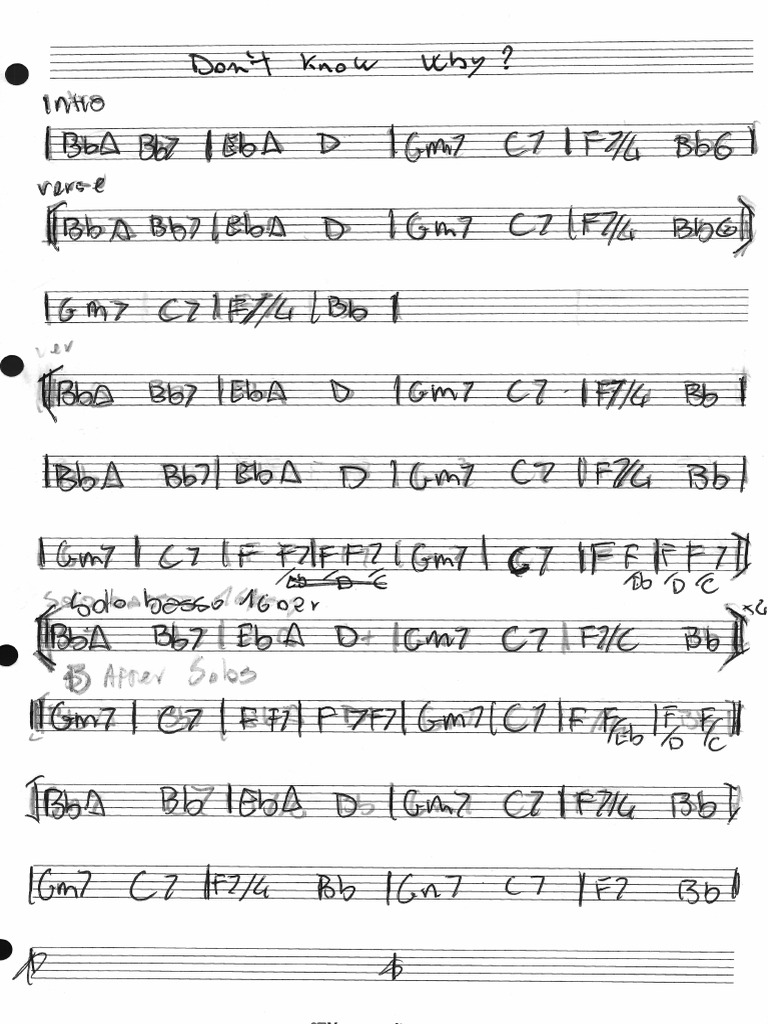 Don't Know Why?
Intro
| BbΔ Bb7 | EbΔ D | Gm7 C7 | F7/4 Bb6 |
verse
[ BbΔ Bb7 | EbΔ D | Gm7 C7 | F7/4 Bb6 ]
| Gm7 C7 | F7/4 | Bb |
ver
[ BbΔ Bb7 | EbΔ D | Gm7 C7 | F7/4 Bb |
| BbΔ Bb7 | EbΔ D | Gm7 C7 | F7/4 Bb |
| Gm7 | C7 | F F7 | F F7 | Gm7 | C7 | F F/Eb | F/D F7/C ]
Solo basso
[ BbΔ Bb7 | EbΔ D | Gm7 C7 | F7/C Bb ]
B After Solos
|| Gm7 | C7 | F F7 | F F7 | Gm7 | C7 | F F/Eb | F/D F/C ||
[ BbΔ Bb7 | EbΔ D | Gm7 C7 | F7/4 Bb ]
| Gm7 C7 | F7/4 Bb | Gm7 C7 | F7 Bb ||